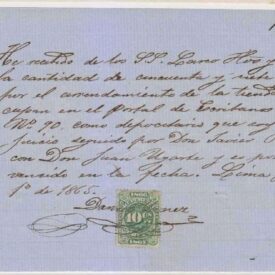 He recibido de los SS. Larco Hos y
la cantidad de cincuenta y siete
por el arrendamiento de la tienda
en el portal de Escribanos
Nº 90. como depositario que soy
juicio seguido por Don Javier
con Don Juan Ugarte y es por
vencido en la fecha. Lima
1º de 1865.
10